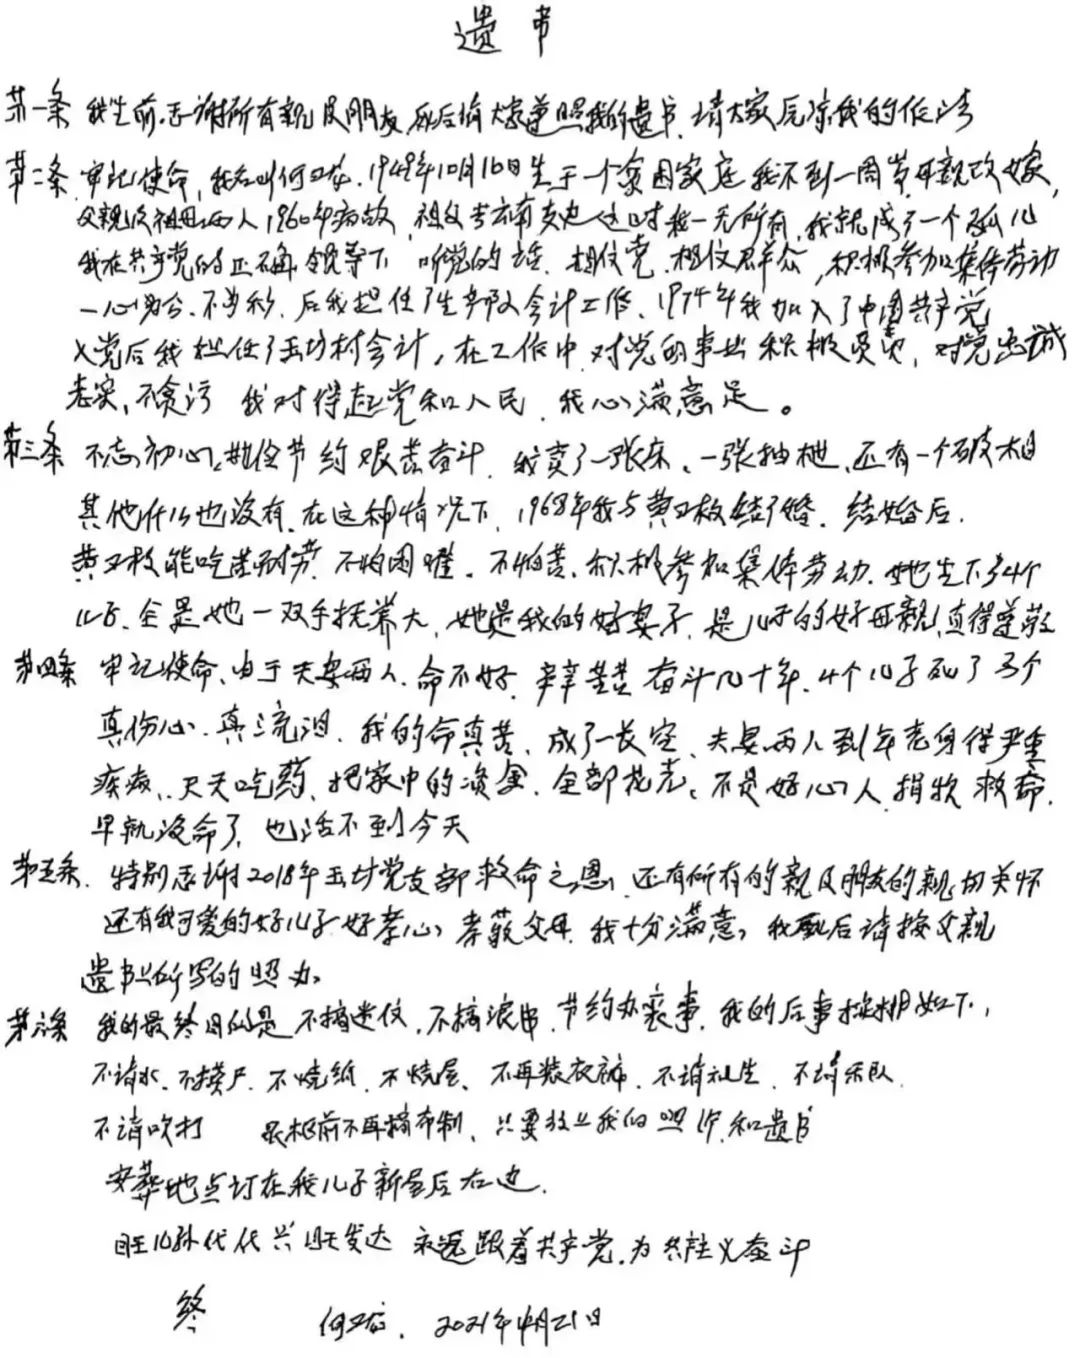 遗书
第一条 我生前感谢所有亲及朋友 死后请大家遵照我的遗书 请大家原谅我的作法
第二条 牢记使命, 我名叫何 . 1948年10月10日生于一个贫困家庭 我不到一周岁母亲改嫁,
父亲及祖母两人1960年病故, 祖父 这时我一无所有, 我就成了一个孤儿
我在共产党的正确领导下 听党的话. 相信党. 相信群众, 积极参加集体劳动
一心为公. 不 , 后我担任了生产队会计工作、1974年我加入了中国共产党
入党后我担任了玉坊村会计, 在工作中 对党的事业积极负责, 对党忠诚
老实, 不贪污 我对得起党和人民. 我心满意足。
第三条 不忘初心, 勤俭节约艰苦奋斗. 我卖了一张床、一张抽柜、还有一个破木箱
其他什么也没有. 在这种情况下, 1968年我与黄卫枚结了婚. 结婚后.
黄卫枚能吃苦耐劳. 不怕困难. 不怕苦. 积极参加集体劳动. 她生下了4个
儿子. 全是她一双手抚养大, 她是我的好妻子. 是儿子的好母亲, 真得尊敬
第四条 牢记使命, 由于夫妻两人. 命不好. 辛辛苦苦奋斗几十年. 4个儿子死了3个
真伤心. 真流泪. 我的命真苦. 成了一长空. 夫妻两人到年老身得严重
疾病. 天天吃药. 把家中的资金. 全部花光. 不是好心人捐款救命.
早就没命了, 也活不到今天
第五条. 特别感谢2018年玉坊党支部救命之恩, 还有所有的亲及朋友的亲切关怀
还有我可爱的好儿子好孝心, 孝敬父母. 我十分满意, 我死后请按父亲
遗书上所写的照办.
第六条 我的最终目的是 不搞迷信. 不搞浪费. 节约办丧事. 我的后事按排如下,
不请水. 不摸尸. 不烧纸. 不烧屋. 不再装衣裤. 不请礼生. 不请乐队.
不请吹打 灵柩前不再搞布制. 只要放上我的照片, 和遗书
安葬地点订在我儿子新屋后右边.
旺儿孙代代兴旺发达 永远跟着共产党. 为共产主义奋斗
终 何 . 2021年4月21日